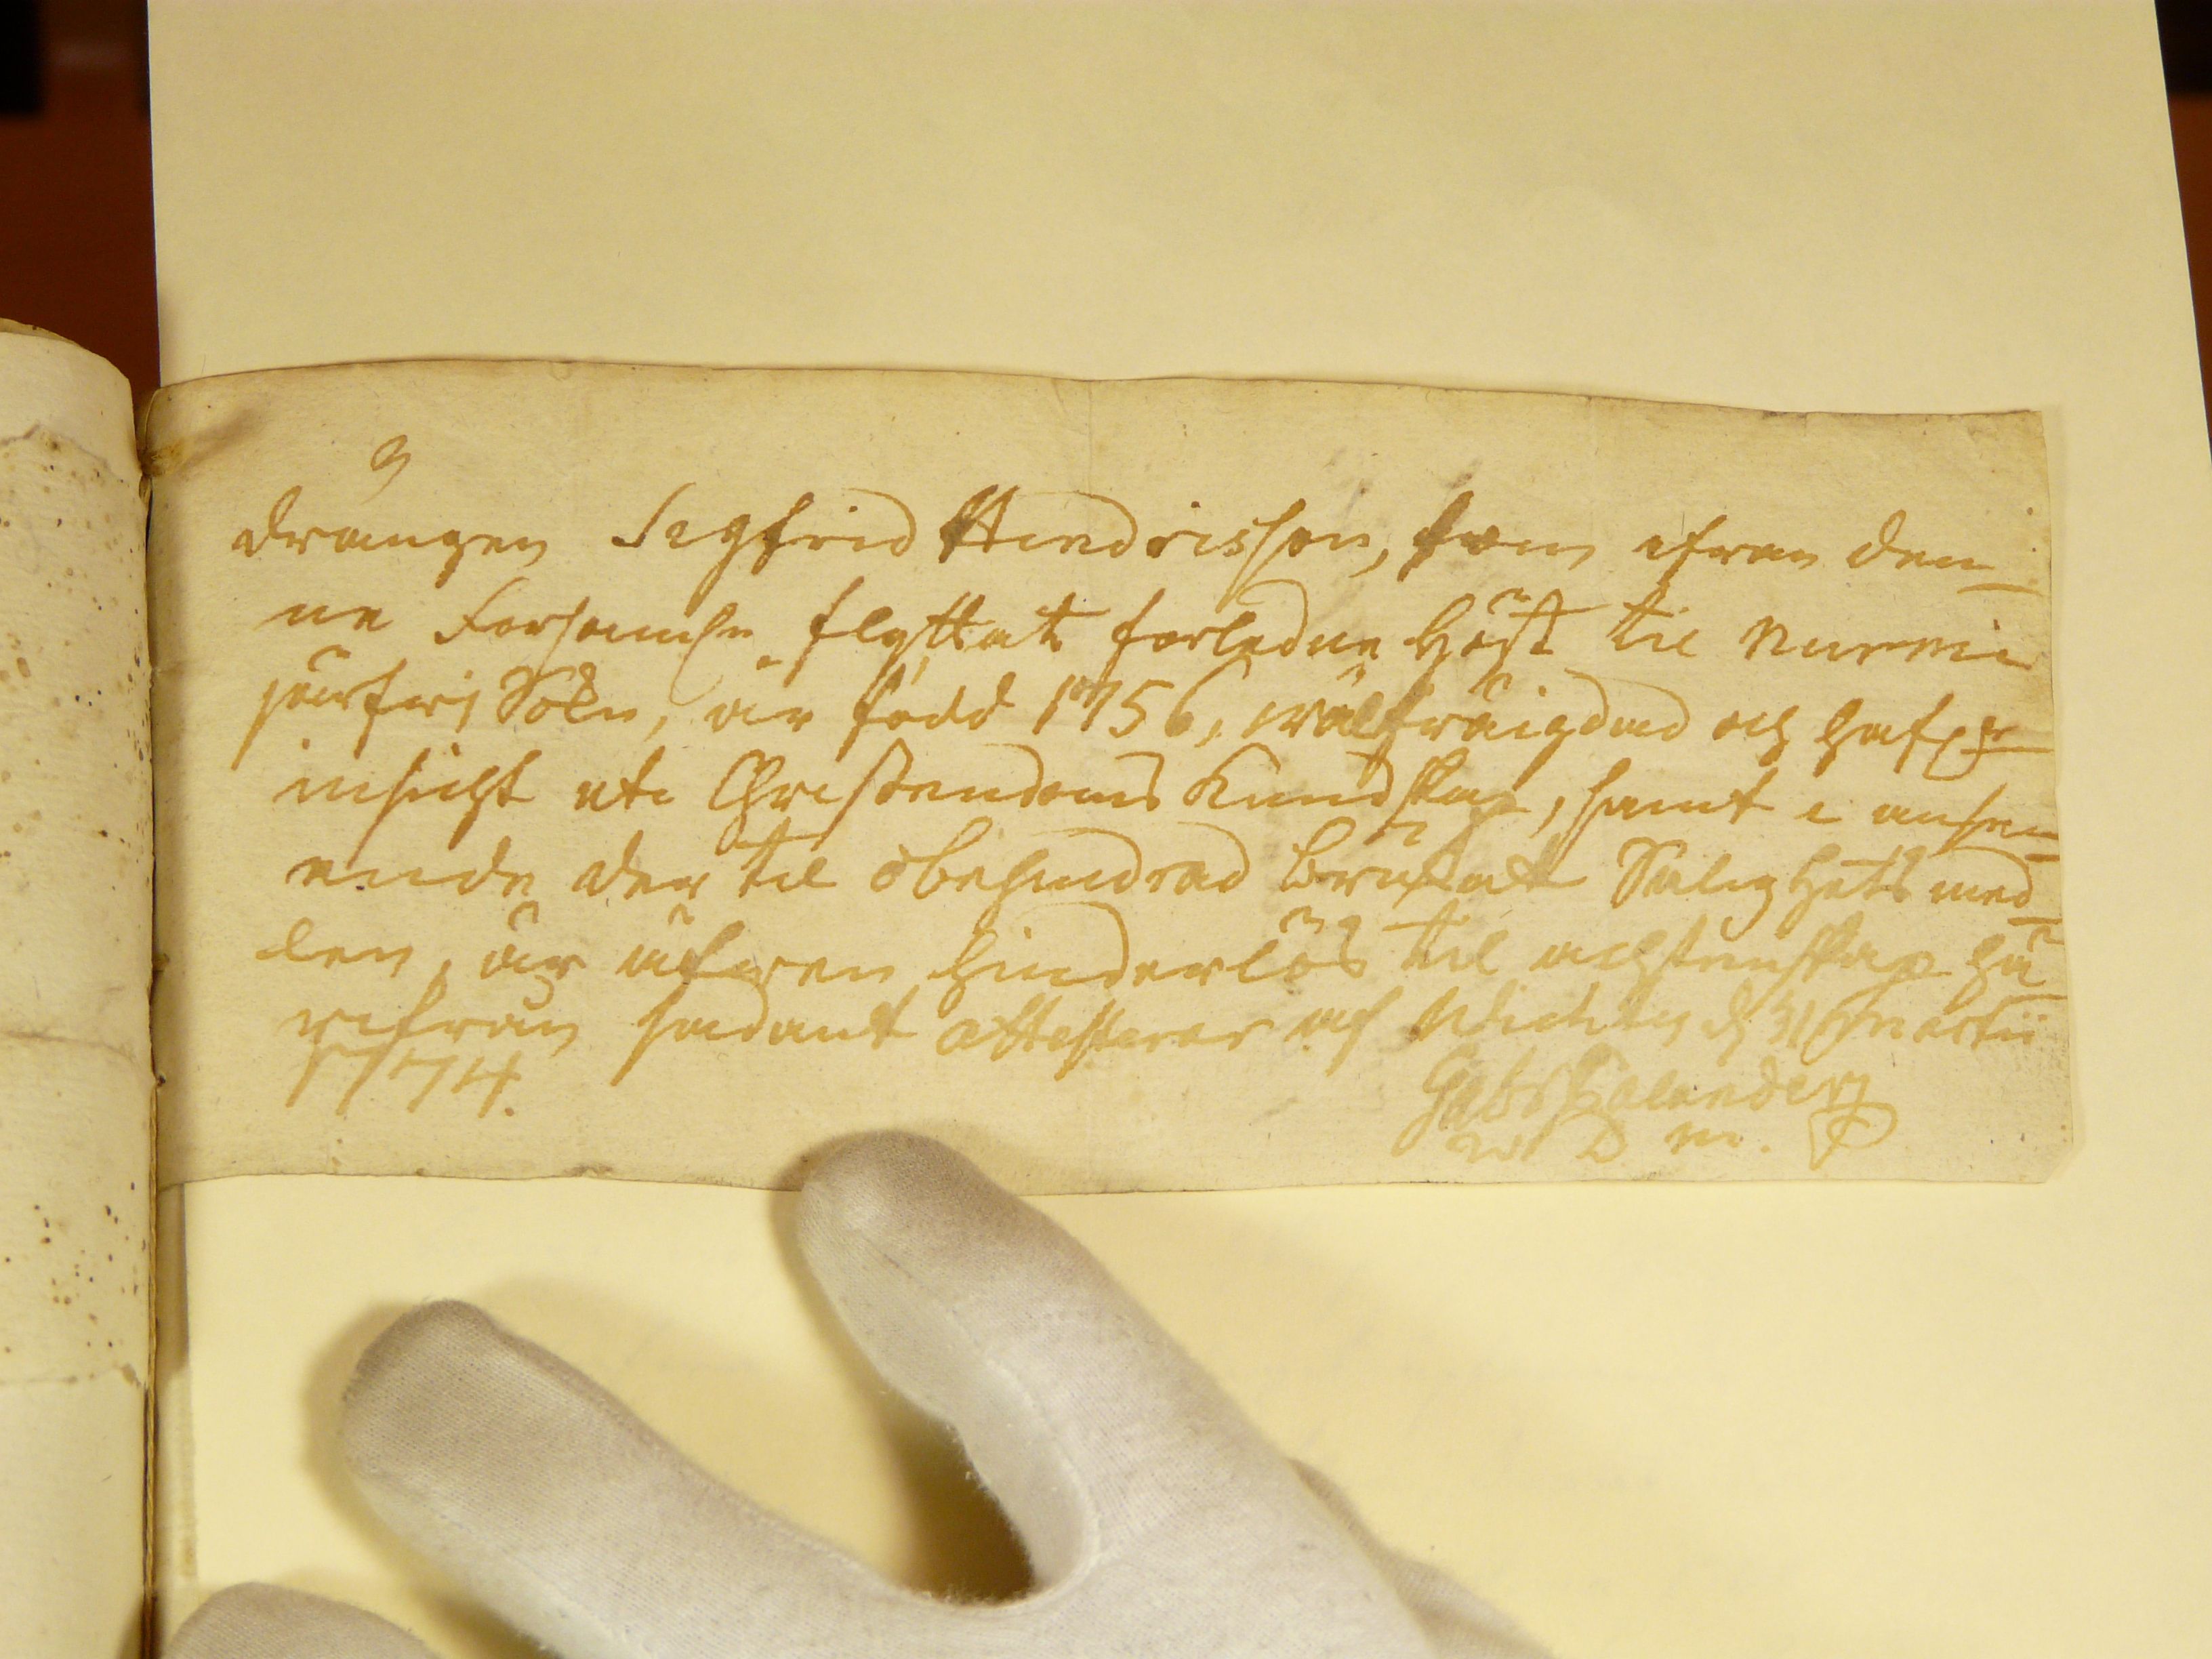 9
Drängen Sigfrid Hindrichsson, som ifran den¬
ne Forsamlh. flyttat forledne Höst til Nurmi
järfwi Sokn, är född 1756, wälfräigdad och hafr
insicht uti Christendoms Kundskap, samt i anse¬
ende der til obehindrad brukat Salighets med¬
len, är äfwen hinderlös til ächtenskap hä¬
rifrån sådant attesterar af Wichtis d 31 Martii
1774.
Gabr Calander
V D M.